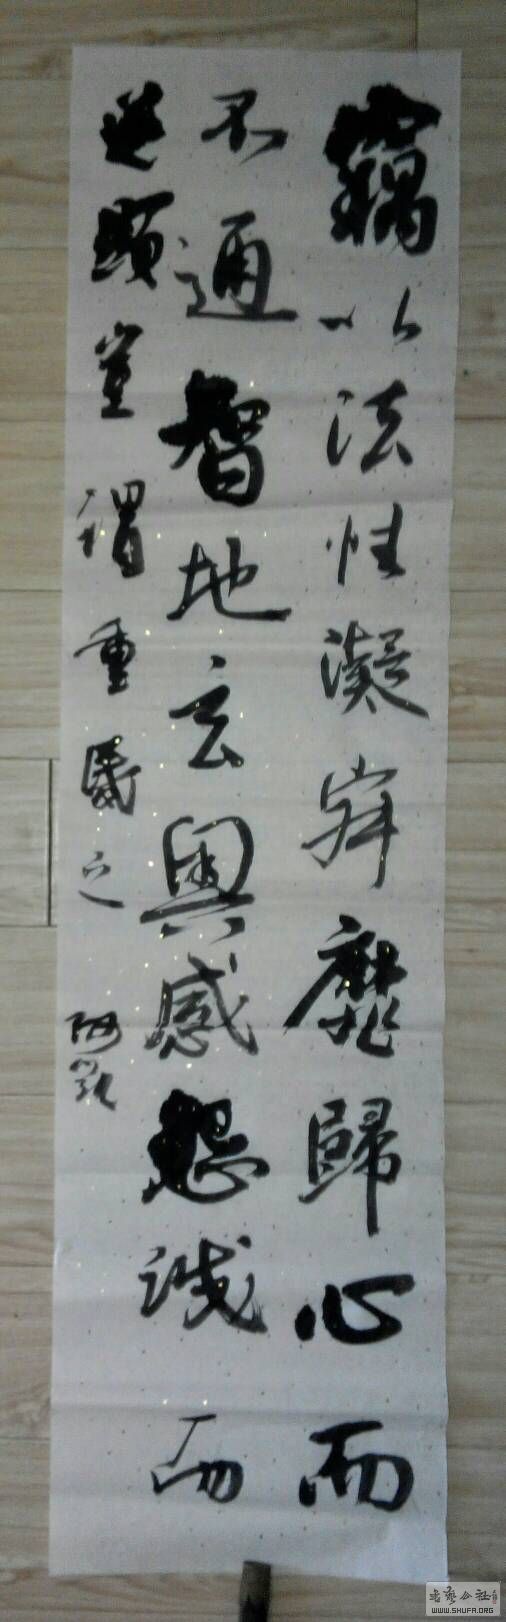 竊以法性凝寂靡歸心而
不通智地玄奧感懇誠而
遂顯豈謂重昏之
书艺公社
WWW.SHUFA.ORG